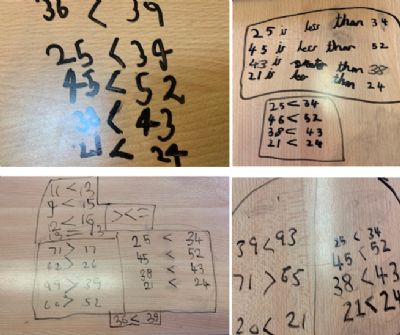 36 < 39
25 < 34
45 < 52
38 < 43
21 < 24
25 is less than 34
45 is less than 52
43 is greater than 38
21 is less than 24
25 < 34
46 < 52
38 < 43
21 < 24
11 < 13
9 < 15
> < =
71 > 17
62 > 26
99 > 39
66 > 52
25 < 34
45 < 52
38 < 43
21 < 24
36 < 39
39 < 93
71 > 65
20 < 21
25 < 34
45 < 52
38 < 43
21 < 24